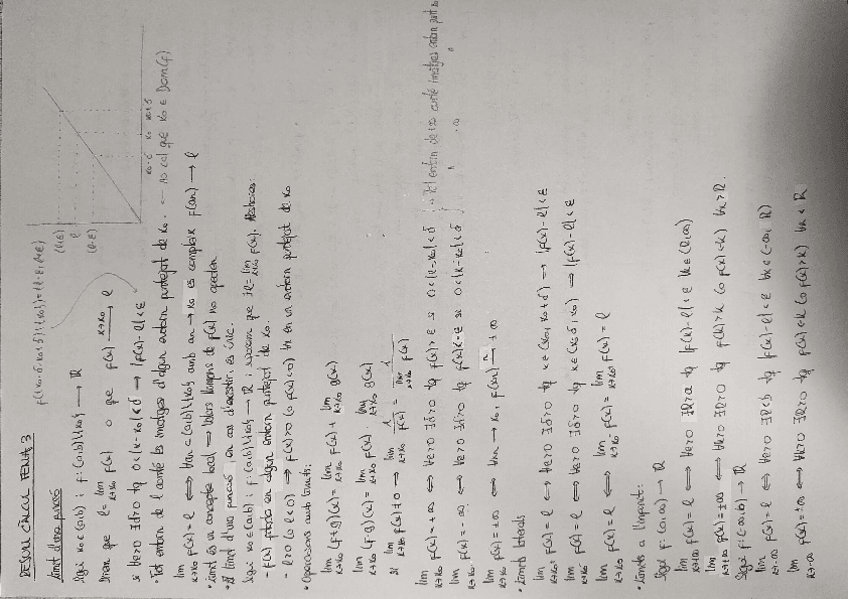 RESUM CÀLCUL TEMA 3
Límit d'una funció
Sigui x₀ ∈ (a,b) i f: (a,b)\{x₀} → ℝ
Direm que ℓ = lim x→x₀ f(x) o que f(x) x→x₀ → ℓ
si ∀ε>0 ∃δ>0 tq 0<|x-x₀|<δ → |f(x)-ℓ|<ε
f((x₀-δ, x₀+δ)\{x₀}) ⊂ (ℓ-ε, ℓ+ε)
(ℓ+ε)
ℓ
(ℓ-ε)
x₀-δ x₀ x₀+δ
• Tot entorn de ℓ conté les imatges d'algun entorn puntejat de x₀. ← no cal que x₀ ∈ Dom(f)
lim x→x₀ f(x) = ℓ ⟺ ∀aₙ ⊂ (a,b)\{x₀} amb aₙ → x₀ es compleix f(aₙ) → ℓ
• Límit és un concepte local
• El límit d'una funció, en cas d'existir, és únic.
Sigui x₀ ∈ (a,b) i f: (a,b)\{x₀} → ℝ i suposem que ∃ℓ = lim x→x₀ f(x). Aleshores:
- f(x) fitada en algun entorn puntejat de x₀.
- ℓ>0 (o ℓ<0) → f(x)>0 (o f(x)<0) ∀x en un entorn puntejat de x₀
• Operacions amb límits:
lim x→x₀ (f+g)(x) = lim x→x₀ f(x) + lim x→x₀ g(x)
lim x→x₀ (f·g)(x) = lim x→x₀ f(x) · lim x→x₀ g(x)
si lim x→x₀ f(x) ≠ 0 → lim x→x₀ 1/f(x) = 1/lim x→x₀ f(x)
lim x→x₀ f(x) = +∞ ⟺ ∀ε>0 ∃δ>0 tq f(x)>ε si 0<|x-x₀|<δ
lim x→x₀ f(x) = -∞ ⟺ ∀ε>0 ∃δ>0 tq f(x)<-ε si 0<|x-x₀|<δ
lim x→x₀ f(x) = ±∞ ⟺ ∀aₙ → x₀, f(aₙ) → ±∞
• Límits laterals
lim x→x₀⁺ f(x) = ℓ ⟺ ∀ε>0 ∃δ>0 tq x ∈ (x₀, x₀+δ) → |f(x)-ℓ|<ε
lim x→x₀⁻ f(x) = ℓ ⟺ ∀ε>0 ∃δ>0 tq x ∈ (x₀-δ, x₀) → |f(x)-ℓ|<ε
lim x→x₀ f(x) = ℓ ⟺ lim x→x₀⁺ f(x) = lim x→x₀⁻ f(x) = ℓ
• Límits a l'infinit:
Sigui f: (a,∞) → ℝ
lim x→+∞ f(x) = ℓ ⟺ ∀ε>0 ∃R>a tq |f(x)-ℓ|<ε ∀x ∈ (R,∞)
lim x→+∞ f(x) = ±∞ ⟺ ∀k>0 ∃R>0 tq f(x)>k (o f(x)<-k) ∀x>R.
Sigui f: (-∞,b) → ℝ
lim x→-∞ f(x) = ℓ ⟺ ∀ε>0 ∃R<b tq |f(x)-ℓ|<ε ∀x ∈ (-∞, R)